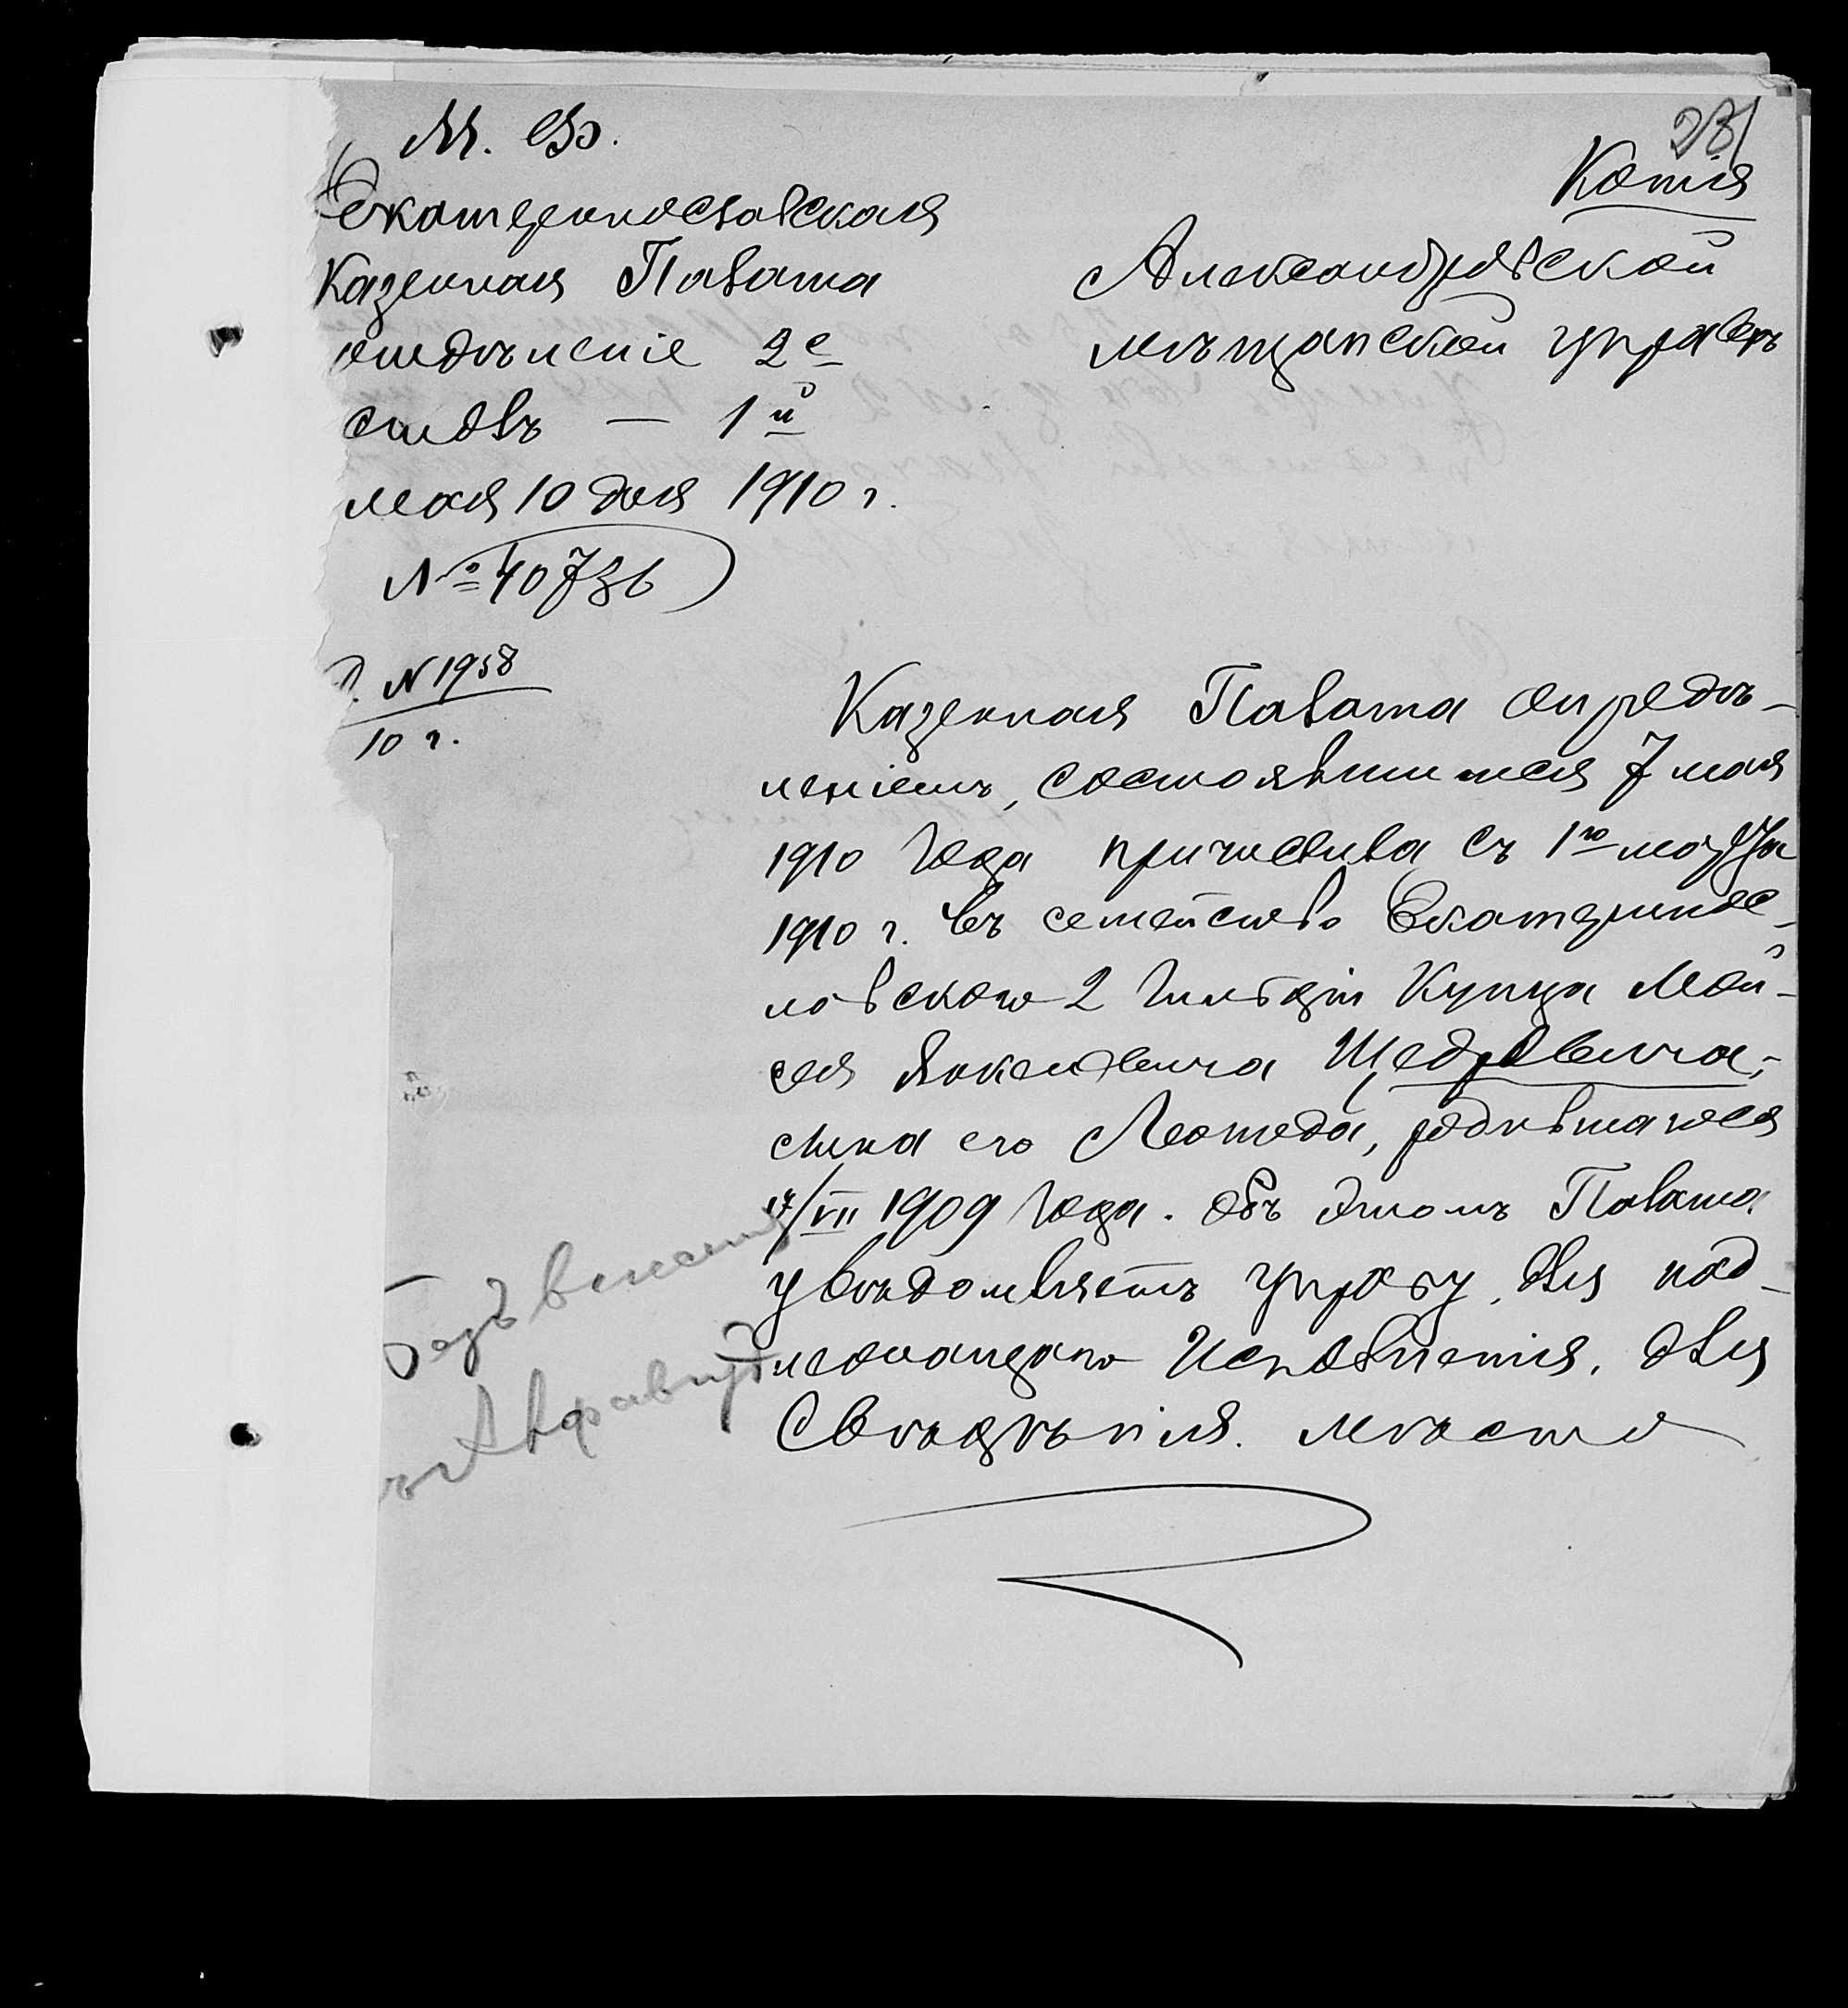 М. Ф.
Екатеринославская
Казенная Палата
отдѣленіе 2е
столъ — 1й
мая 10 дня 1910 г.
№ 40736
Д. N 1958
10 г.
231
Копія
Александровской
мѣщанской управѣ
Казенная Палата опредѣ-
леніемъ, состоявшимся 7 мая
1910 года причислила съ 1го марта
1910 г. въ семейство Екатеринос-
лавского 2 гильдіи Купца Мои-
сея Янкелевича Щедровича,-
сына его Леонида, родившагося
17/VII 1909 года. Объ этомъ Палата
увѣдомляетъ управу, для над-
лежащаго исполненія, для
свѣдѣнія. мѣсто
Безъ